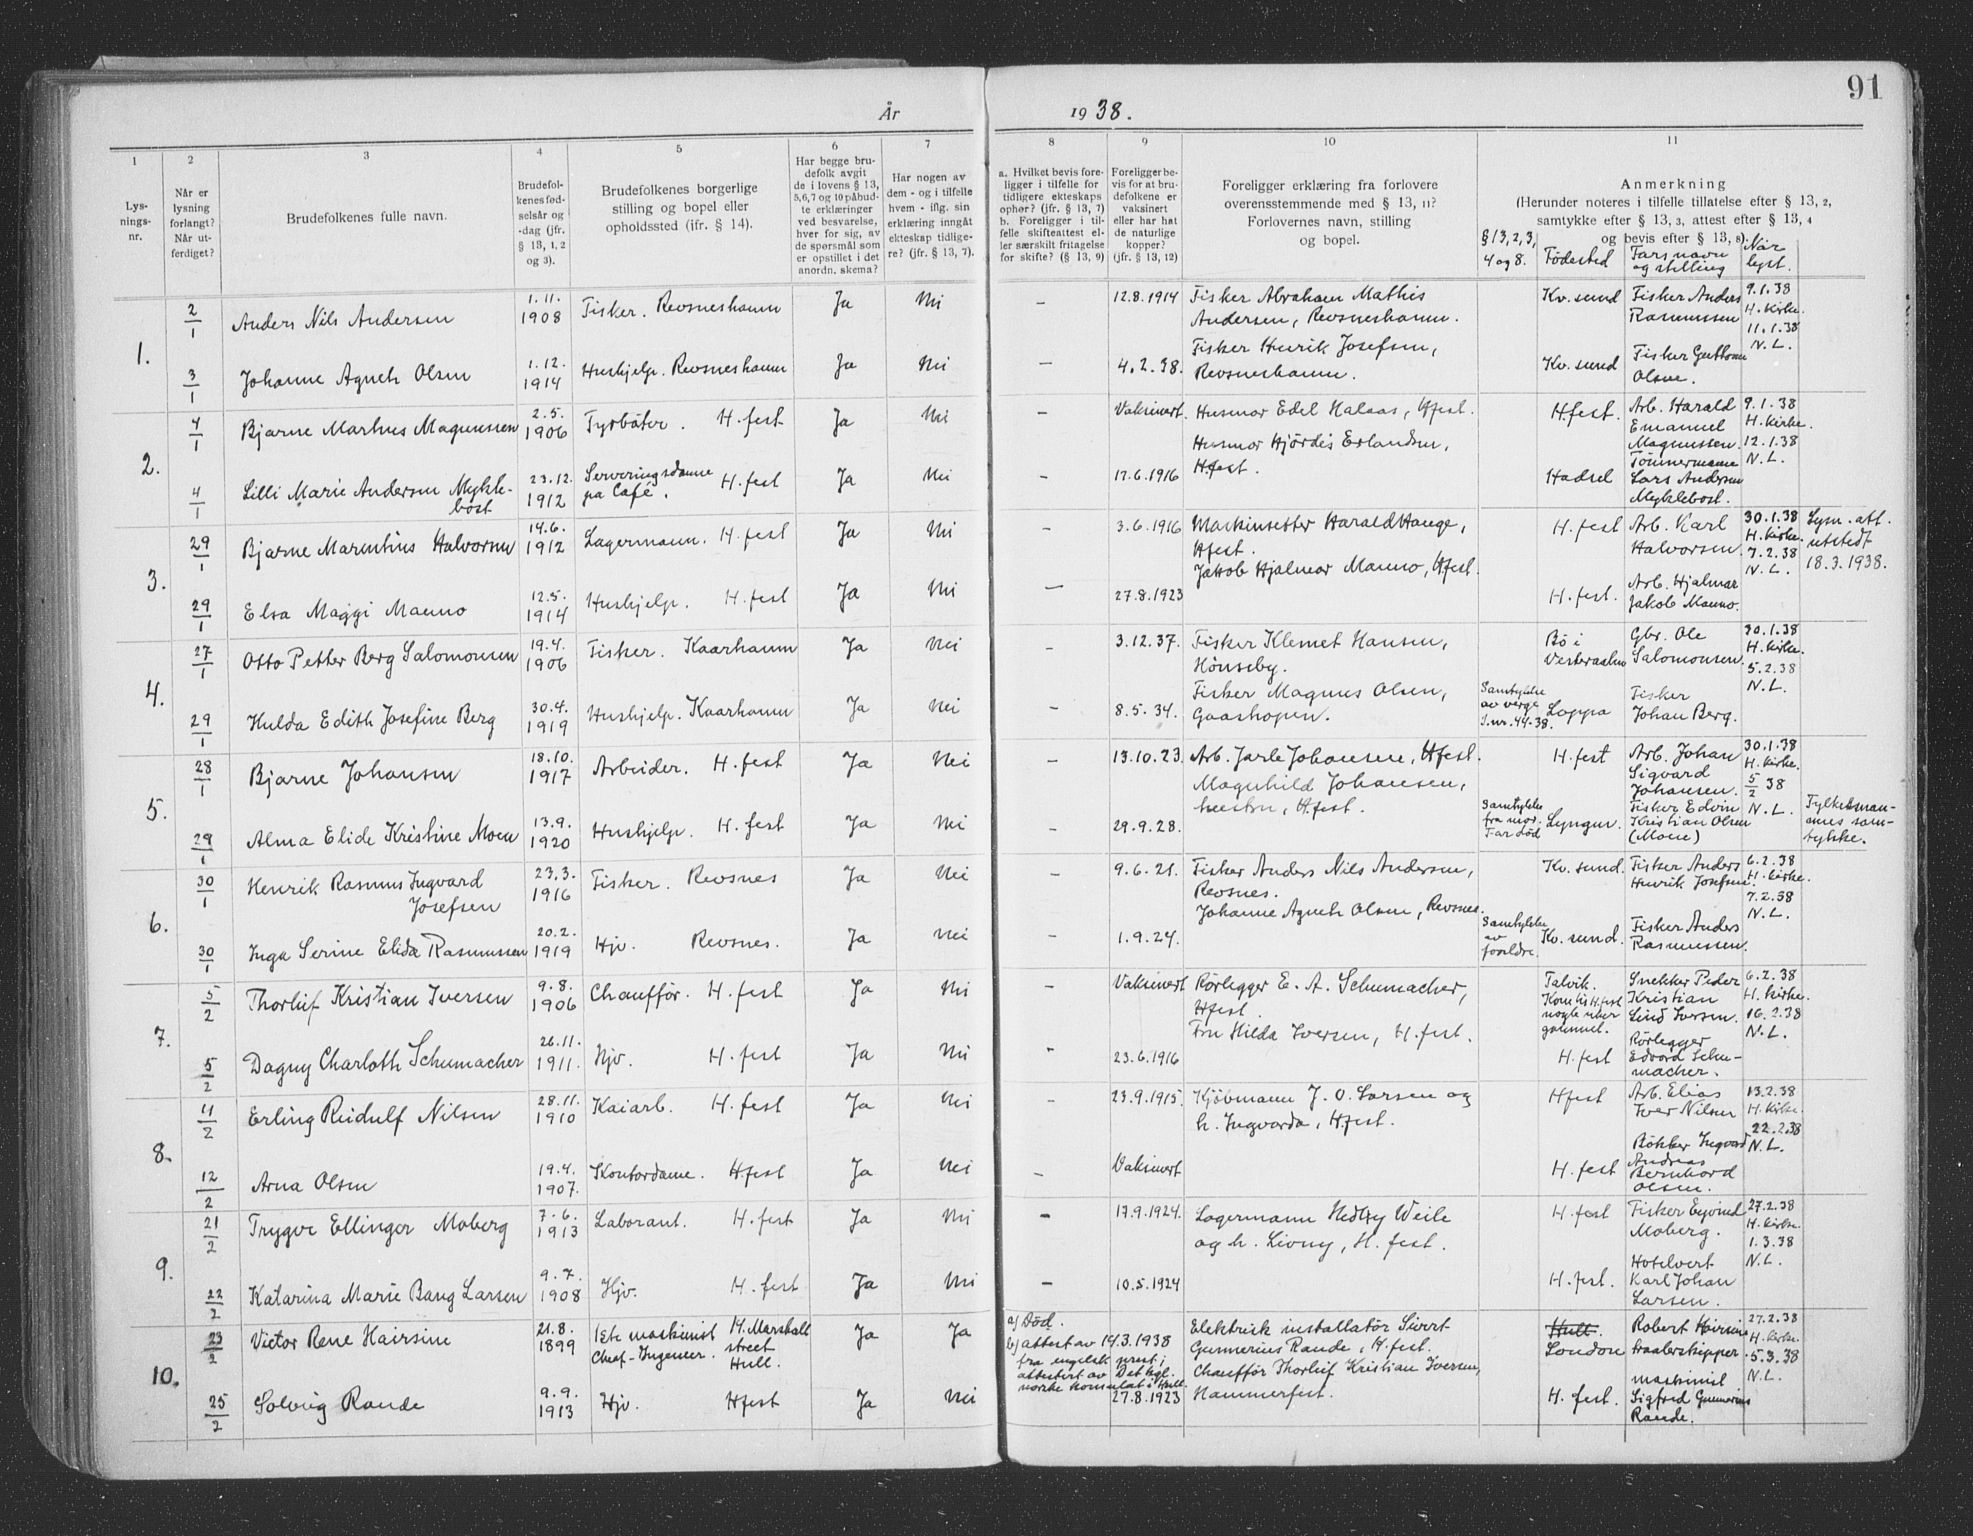 91
År 1938.
1 2 3 4 5 6 7 8 9 10 11
Lys-
nings-
nr.
Når er
lysning
forlangt?
Når ut-
ferdiget?
Brudefolkenes fulle navn.
Brudefol-
kenes fød-
selsår og
-dag (jfr.
§ 13, 1, 2
og 3).
Brudefolkenes borgerlige
stilling og bopel eller
opholdssted (ifr. § 14).
Har begge bru-
defolk avgit
de i lovens § 13,
5,6,7 og 10 påbud-
te erklæringer
ved besvarelse,
hver for sig, av
de spørsmål som
er opstillet i det
anordn. skema?
Har nogen av
dem - og i tilfelle
hvem - iflg. sin
erklæring inngått
ekteskap tidlige-
re? (jfr. § 13, 7).
a. Hvilket bevis fore-
ligger i tilfelle for
tidligere ekteskaps
ophør? (jfr. § 13, 7)
b. Foreligger i til-
felle skifteattest el-
ler særskilt fritagelse
for skifte? (§ 13, 9)
Foreligger be-
vis for at bru-
defolkene er
vaksinert
eller har hat
de naturlige
kopper?
(jfr. § 13, 12)
Foreligger erklæring fra forlovere
overensstemmende med § 13, 11?
Forlovernes navn, stilling
og bopel.
Anmerkning
(Herunder noteres i tilfelle tillatelse efter § 13, 2,
samtykke efter § 13, 3, attest efter § 13, 4
og bevis efter § 13, 8).
§ 13, 2, 3,
4 og 8.
Fødested
Farsnavn
og stilling
Når
lyst.
1.
2/1 Anders Nils Andersen 1.11. 1908 Fisker. Revsneshamn Ja Nei — 12.8.1914 Fisker Abraham Mathis
Andersen, Revsneshamn. Kv.sund Fisker Anders
Rasmussen 9.1.38
H.kirke.
11.1.38
N.L.
3/1 Johanne Agneth Olsen 1.12. 1914 Hushjelp. Revsneshamn Ja Nei — 4.2.38. Fisker Henrik Josefsen,
Revsneshamn. Kv.sund Fisker Guttorm
Olsen.
2.
4/1 Bjarne Marhus Magnussen 2.5. 1906 Fyrbøter. H.fest Ja Nei — Vaksinert. Husmor Edel Halaas, Hfest. Hfest. Arb. Harald
Emanuel
Magnussen. 9.1.38
H.kirke.
12.1.38
N.L.
4/1 Lilli Marie Andersen Mykle-
bost 23.12. 1912 Serveringsdame
på Café. H.fest Ja Nei — 17.6.1916 Husmor Hjørdis Erlandsen,
Hfest. Hadsel Tømmermann
Lars Andersen
Myklebost.
3.
29/1 Bjarne Marentius Halvorsen 14.6. 1912 Lagermann. H.fest Ja Nei — 3.6.1916 Maskinsetter Harald Hauge,
Hfest. H.fest Arb. Karl
Halvorsen. 30.1.38
H.kirke.
7.2.38
N.L. Lysn.att.
utstedt
18.3.1938.
29/1 Elsa Maggi Manno 12.5. 1914 Hushjelp. H.fest Ja Nei — 27.8.1923 Jakob Hjalmar Manno, Hfest. H.fest. Arb. Hjalmar
Jakob Manno.
4.
27/1 Otto Petter Berg Salomonsen 19.4. 1906 Fisker. Kaarhamn Ja Nei — 3.12.37. Fisker Klemet Hansen,
Hønseby. Bø i
Vesteraalen Gbr. Ole
Salomonsen. 30.1.38
H.kirke.
5.2.38
N.L.
29/1 Hulda Edith Josefine Berg 30.4. 1919 Hushjelp. Kaarhamn Ja Nei — 8.5.34. Fisker Magnus Olsen,
Gaashopen. Samtykke
av verge
J.nr.44-38. Loppa Fisker
Johan Berg.
5.
28/1 Bjarne Johansen 18.10. 1917 Arbeider. H.fest Ja Nei — 13.10.23. Arb. Jarle Johansen, Hfest. H.fest Arb. Johan
Sigvard
Johansen. 30.1.38
H.kirke.
5/2 38
N.L.
29/1 Alma Elide Kristine Moen 13.9. 1920 Hushjelp. H.fest Ja Nei — 29.9.28. Magnhild Johansen,
hustru, Hfest. Samtykke
fra mor.
Far død Lyngen. Fisker Edvin
Kristian Olsen
(Moen) Fylkesman-
nens sam-
tykke.
6.
30/1 Henrik Rasmus Ingvard
Josefsen 23.3. 1916 Fisker. Revsnes Ja Nei — 9.6.21. Fisker Anders Nils Andersen,
Revsnes. Kv.sund. Fisker Anders
Henrik Josefsen. 6.2.38
H.kirke.
7.2.38
N.L.
30/1 Inga Serine Elida Rasmussen 20.2. 1919 Hjv. Revsnes. Ja Nei — 1.9.24. Johanne Agneth Olsen, Revsnes. Samtykke
av
foreldre. Kv.sund. Fisker Anders
Rasmussen.
7.
5/2 Thorleif Kristian Iversen 9.8. 1906 Chauffør. H.fest Ja Nei — Vaksinert Rørlegger E. A. Schumacher,
Hfest. Talvik.
Kom til H.fest
nogle uker
gammel. Snekker Peder
Kristian
Lind Iversen. 6.2.38
H.kirke.
16.2.38
N.L.
5/2 Dagny Charloth Schumacher 26.11. 1911. Hjv. H.fest Ja Nei — 23.6.1916 Fru Hilda Iversen, H.fest. H.fest Rørlegger
Edvard Schu-
macher.
8.
11/2 Erling Reidulf Nilsen 28.11. 1910 Kaiarb. H.fest Ja Nei — 23.9.1915. Kjøbmann J. O. Larsen og
h. Ingvarda, Hfest. Hfest Arb. Elias
Iver Nilsen 13.2.38
H.kirke.
22.2.38
N.L.
12/2 Arna Olsen 19.4. 1907. Kontordame. Hfest Ja Nei — Vaksinert H.fest Bøkker Ingvard
Andreas
Bernhard
Olsen.
9.
21/2 Trygve Ellinger Moberg 7.6. 1913 Laborant. H.fest Ja Nei — 17.9.1924. Lagermann Hedley Weile
og h. Livny, H.fest. H.fest Fisker Eyvind
Moberg. 27.2.38
H.kirke.
1.3.38
N.L.
22/2 Katarina Marie Bang Larsen 9.7. 1908 Hjv. H.fest Ja Nei — 10.5.1924 H.fest. Hotelvert
Karl Johan
Larsen.
10.
23/2 Victor Rene Hairsine 21.8. 1899 1ste maskinist
Chief-Ingenier. H. Marshall
street
Hull. Ja Ja a) Død.
b) attest av 14.3.1938
fra engelsk prest;
attestert av Det kgl.
norske konsulat i Hull. Elektrisk installatør Sivert
Gunnerius Rande, H.fest. Hull.
London Robert Hairsine
traalerskipper 27.2.38
H.kirke.
5.3.38
N.L.
25/2 Solveig Rande 9.9. 1913 Hjv. Hfest Ja Nei 27.8.1923 Chauffør Thorleif Kristian Iversen,
Hammerfest. H.fest. maskinist
Sigfred Gunnerius
Rande.